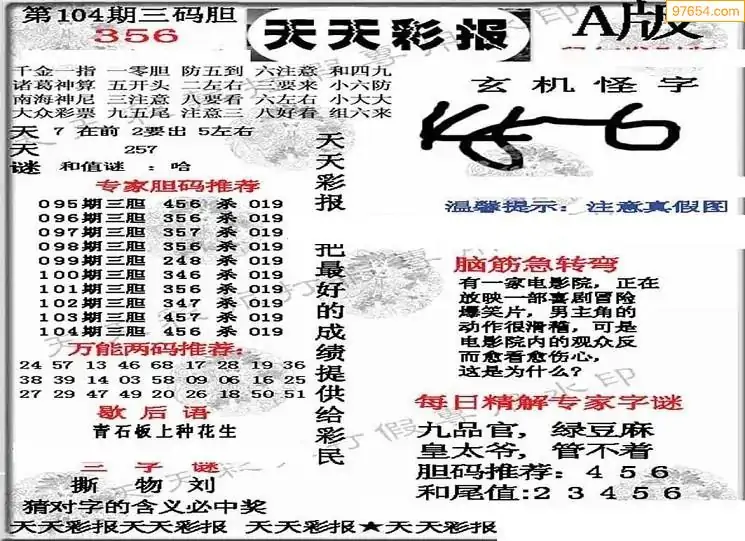 第104期三码胆
356
天天彩报
A版
97654.com
千金一指 一零胆 防五到 六注意 和四九
诸葛神算 五开头 二左右 三要来 小六防
南海神尼 三注意 八要看 六左右 小大大
大众彩票 九五尾 注意三 八好看 组六来
天 7 在前 2要出 5左右
天 257
谜 和值谜 : 哈
专家胆码推荐
095期三胆 456 杀 019
096期三胆 356 杀 019
097期三胆 357 杀 019
098期三胆 356 杀 019
099期三胆 248 杀 019
100期三胆 346 杀 019
101期三胆 356 杀 019
102期三胆 347 杀 019
103期三胆 457 杀 019
104期三胆 456 杀 019
万能两码推荐:
24 57 13 46 68 17 28 19 36
38 39 14 03 58 09 06 16 25
27 29 47 49 20 26 18 50 51
歇后语
青石板上种花生
三子谜
撕 物 刘
猜对字的含义必中奖
天天彩报 把最好的成绩提供给彩民
玄机怪字
温馨提示: 注意真假图
脑筋急转弯
有一家电影院,正在
放映一部喜剧冒险
爆笑片,男主角的
动作很滑稽,可是
电影院内的观众反
而愈看愈伤心,
这是为什么?
每日精解专家字谜
九品官,绿豆麻
皇太爷,管不着
胆码推荐: 4 5 6
和尾值:2 3 4 5 6
天天彩报天天彩报 天天彩报★天天彩报